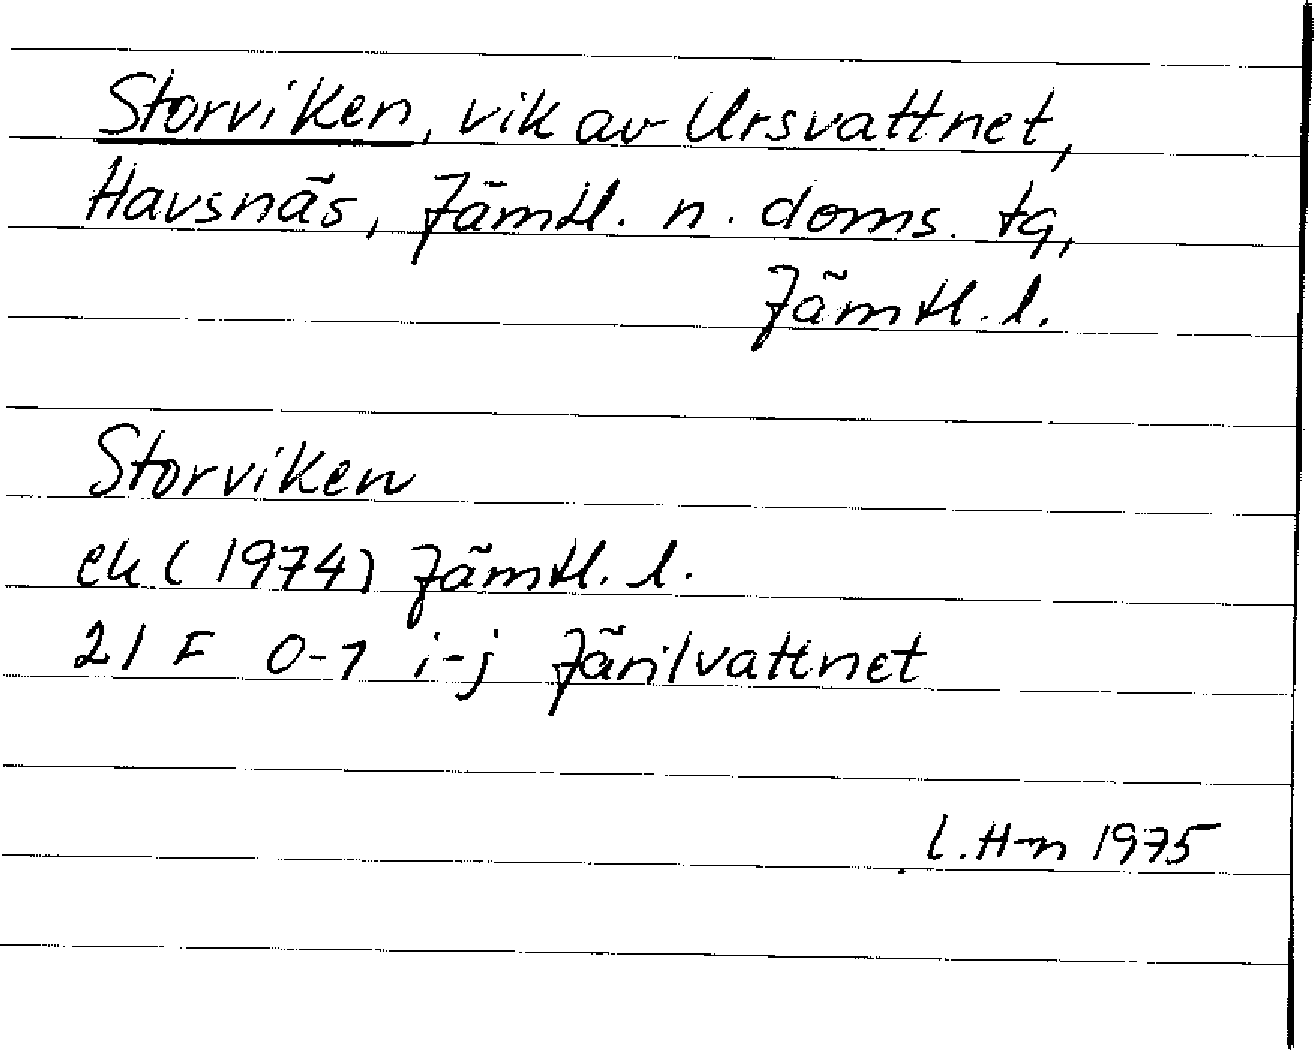 Storviken, vik av Ursvattnet,
Havsnäs, Jämtl. n. doms. tg,
Jämtl. l.
Storviken
ek (1974) Jämtl. l.
21 F 0-1 i-j Järilvattnet
l. H-n 1975